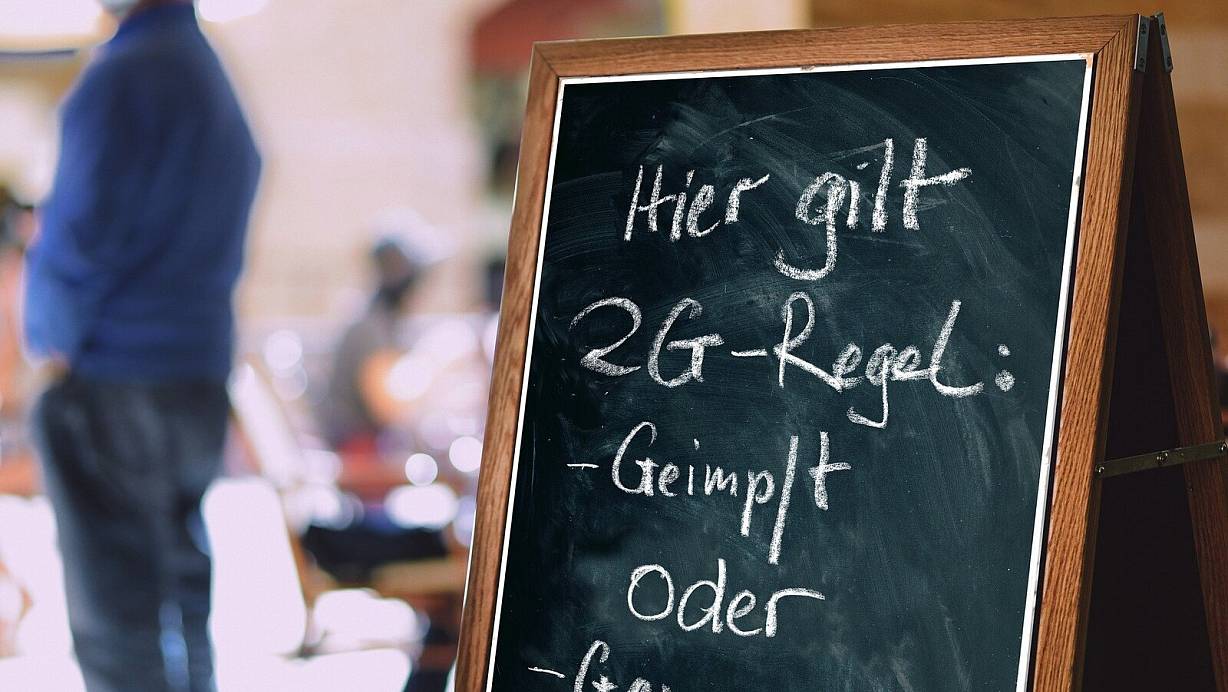 Hier gilt
2G-Regel:
- Geimpft
Oder